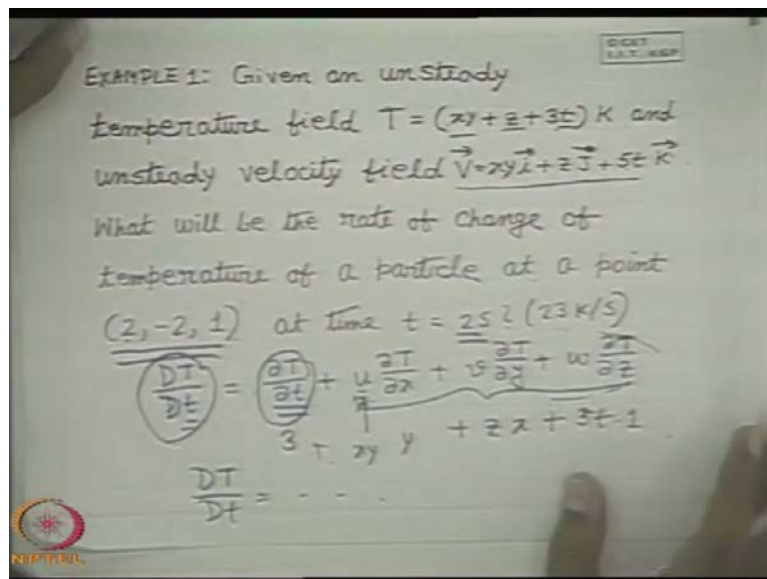 © CET
I.I.T. KGP
EXAMPLE 1: Given an unsteady
temperature field T = (xy + z + 3t) K and
unsteady velocity field V⃗ = xy i⃗ + z J⃗ + 5t K⃗.
What will be the rate of change of
temperature of a particle at a point
(2, -2, 1) at time t = 2S ? (23 K/S)
DT/Dt = ∂T/∂t + u ∂T/∂x + v ∂T/∂y + w ∂T/∂z
3 + xy y + z x + 5t · 1
DT/Dt = - - .
NIPTEL